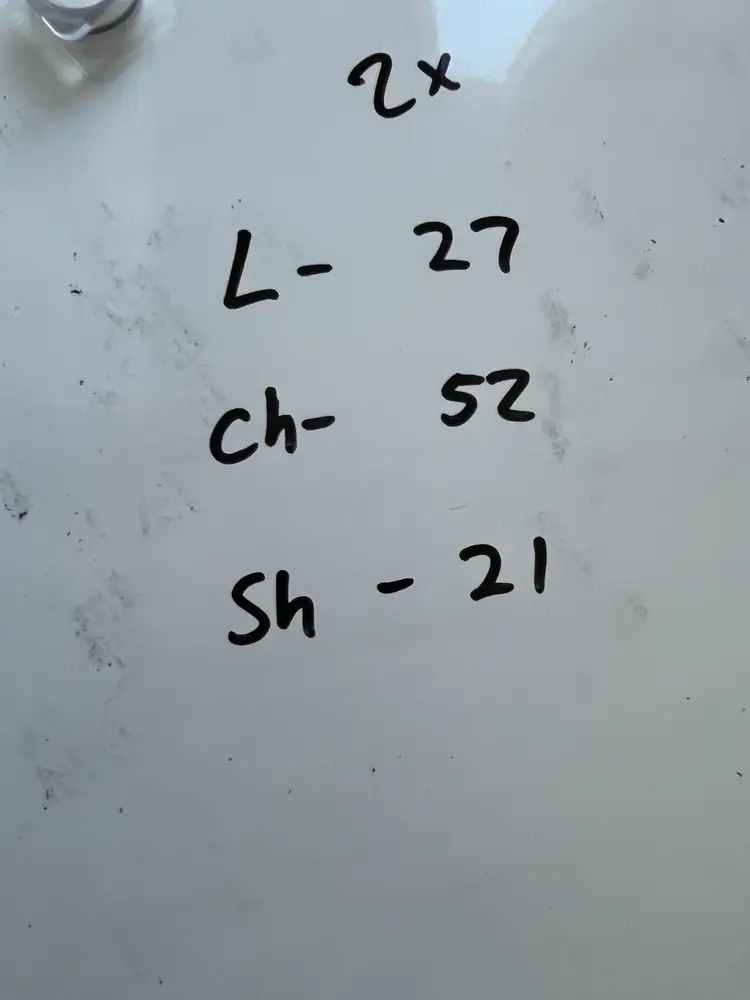 2x
L- 27
Ch- 52
Sh - 21